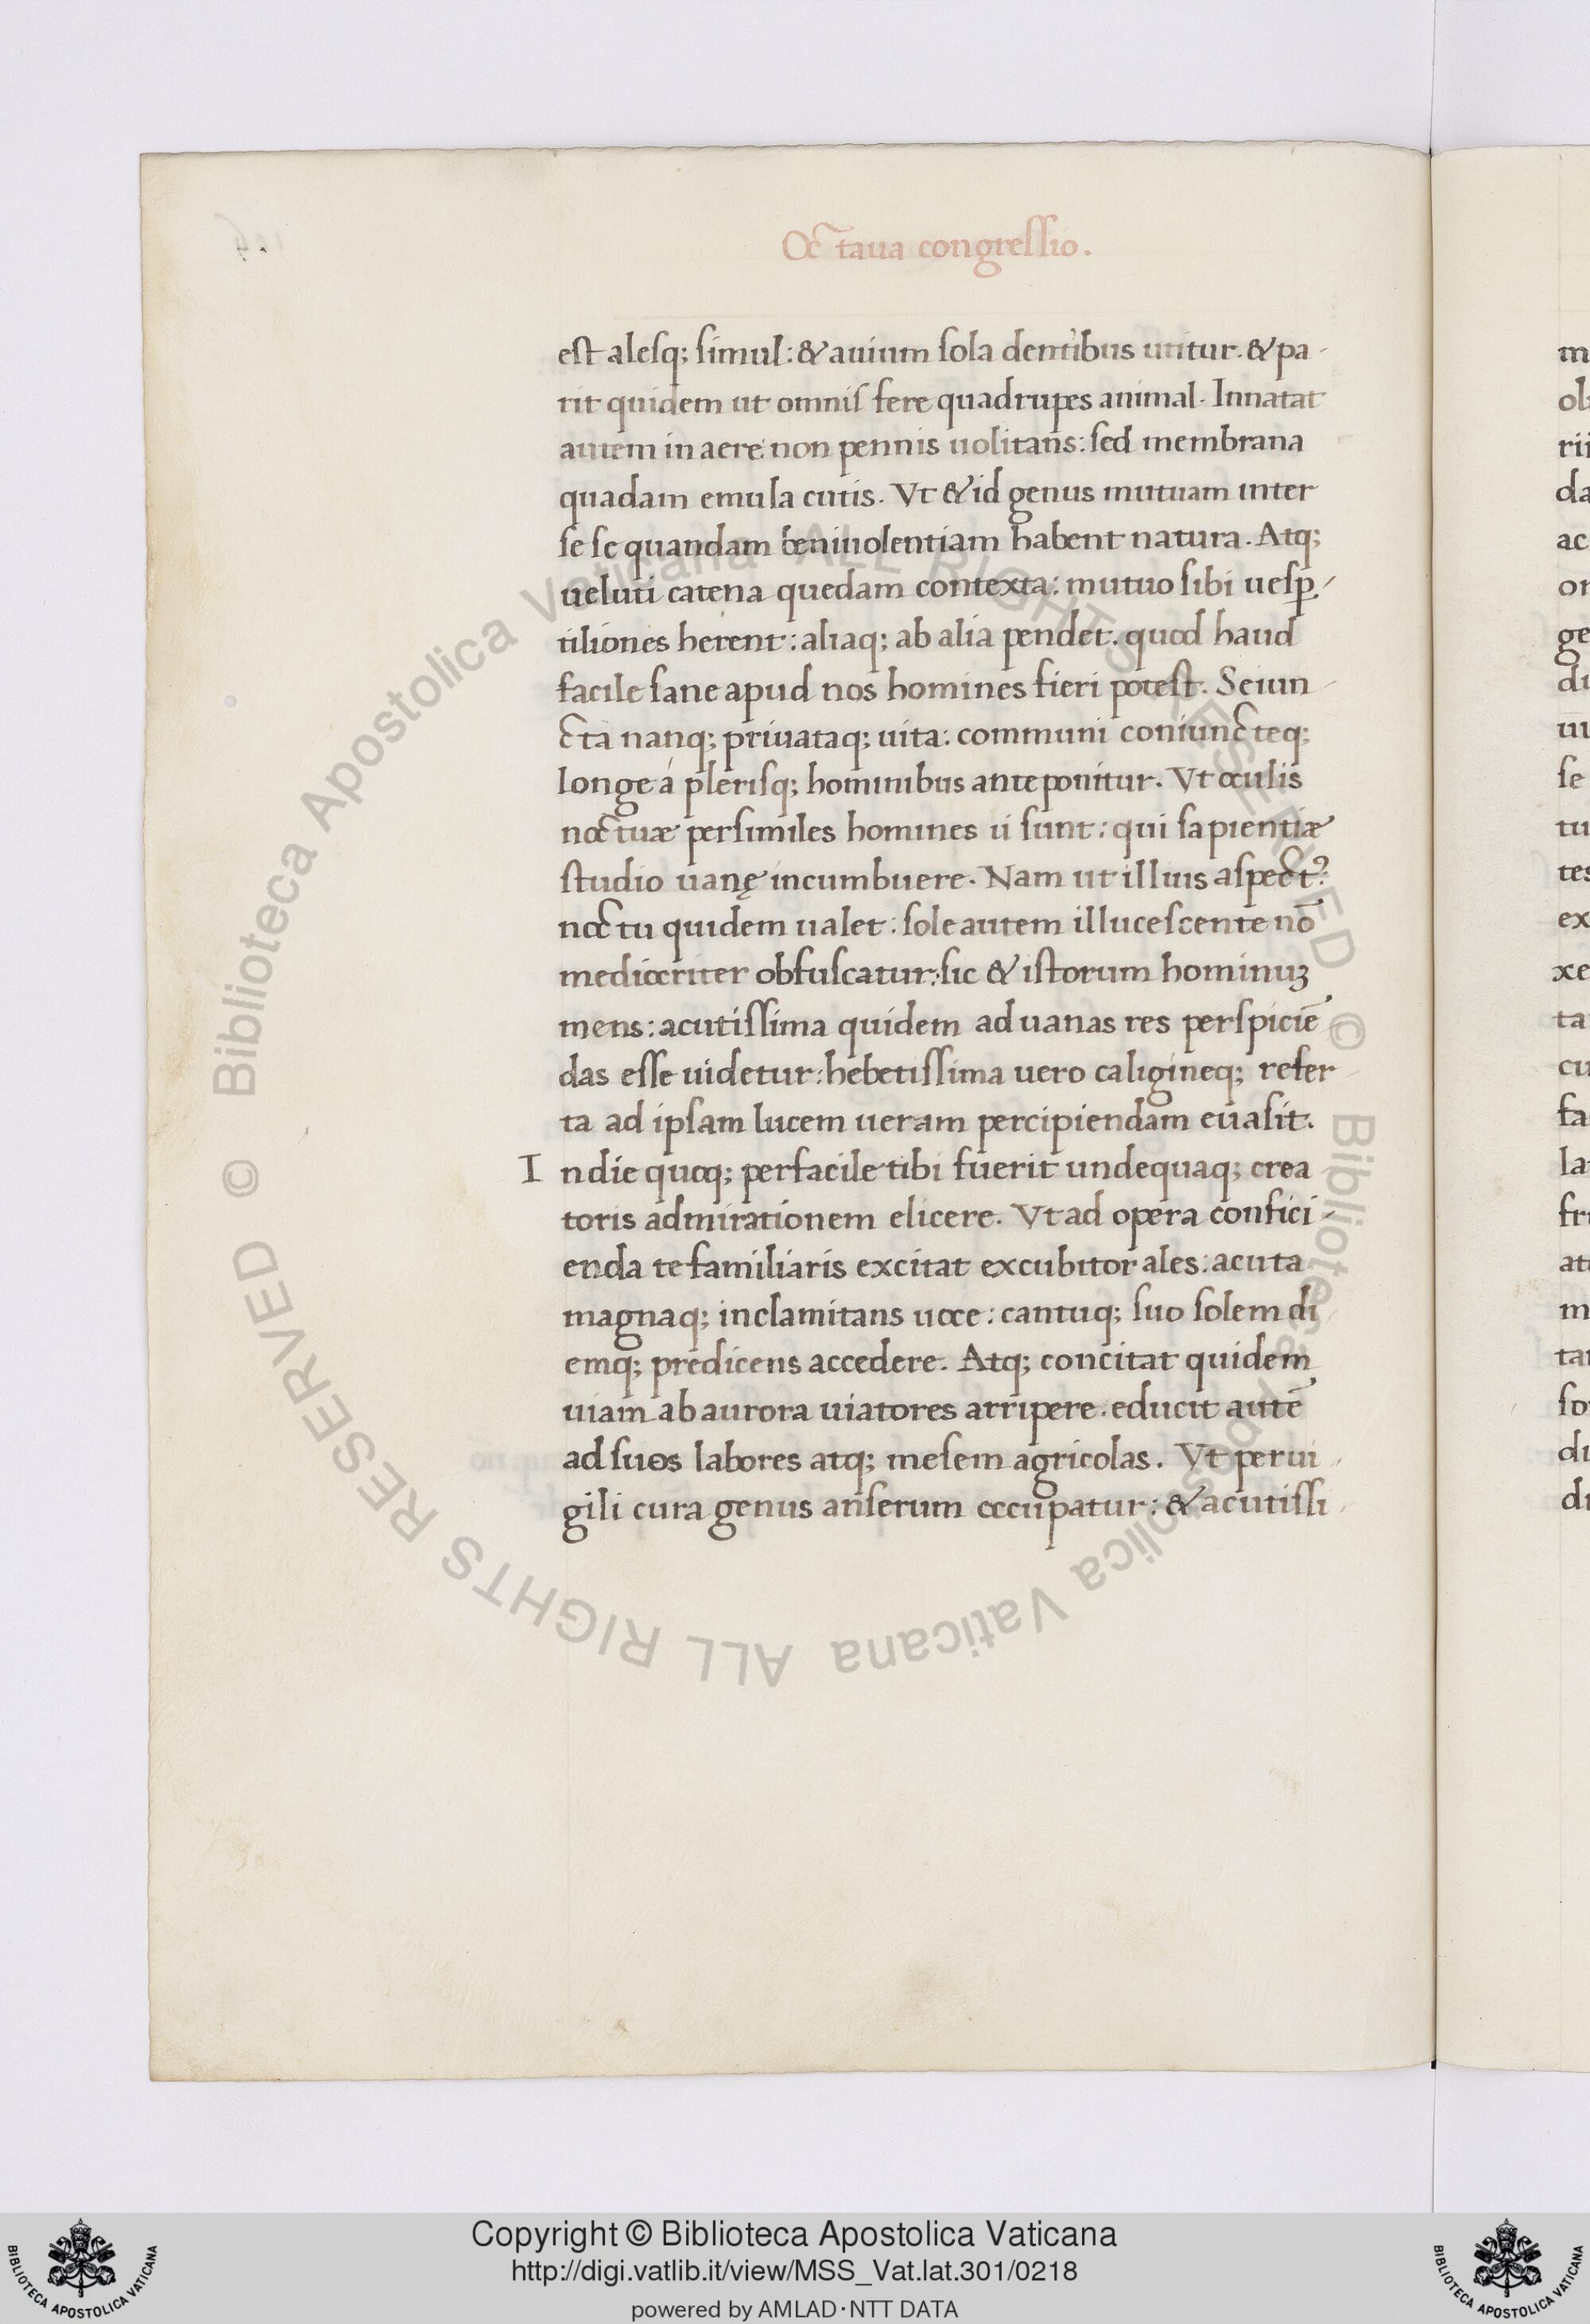 Octaua congressio.
est alesq; simul: & auium sola dentibus utitur. & pa-
rit quidem ut omnis fere quadrupes animal. Innatat
autem in aere: non pennis uolitans: sed membrana
quadam emula cutis. Vt & id genus mutuam inter
se se quandam beniuolentiam habent natura. Atq;
ueluti catena quedam contexta: mutuo sibi uesp̱-
tiliones herent: aliaq; ab alia pendet. quod haud
facile sane apud nos homines fieri potest. Seiun-
cta nanq; priuataq; uita: communi coniuncteq;
longe á plerisq; hominibus anteponitur. Vt oculis
noctuæ persimiles homines ii sunt: qui sapientiæ
studio uanę incumbuere. Nam ut illius aspectꝰ
noctu quidem ualet: sole autem illucescente nō
mediocriter obfuscatur: sic & istorum hominuꝫ
mens: acutissima quidem ad uanas res perspiciē-
das esse uidetur: hebetissima uero caligineq; refer-
ta ad ipsam lucem ueram percipiendam euasit.
Indie quoq; perfacile tibi fuerit undequaq; crea-
toris admirationem elicere. Vt ad opera confici-
enda te familiaris excitat excubitor ales: acuta
magnaq; inclamitans uoce: cantuq; suo solem di
emq; predicens accedere. Atq; concitat quidem
uiam ab aurora uiatores arripere. educit autē
ad suos labores atq; mesem agricolas. Vt perui-
gili cura genus anserum occupatur: & acutissi-
m
ol
rii
da
ac
or
ge
di
ui
se
tu
tes
ex
xe
ta
cu
fa
la
fr
at
m
ta
so
du
di
© Biblioteca Apostolica Vaticana ALL RIGHTS RESERVED © Biblioteca Apostolica Vaticana ALL RIGHTS RESERVED
Copyright © Biblioteca Apostolica Vaticana
http://digi.vatlib.it/view/MSS_Vat.lat.301/0218
powered by AMLAD·NTT DATA
BIBLIOTECA APOSTOLICA VATICANA
BIBLIOTECA APOSTOLICA VATICANA